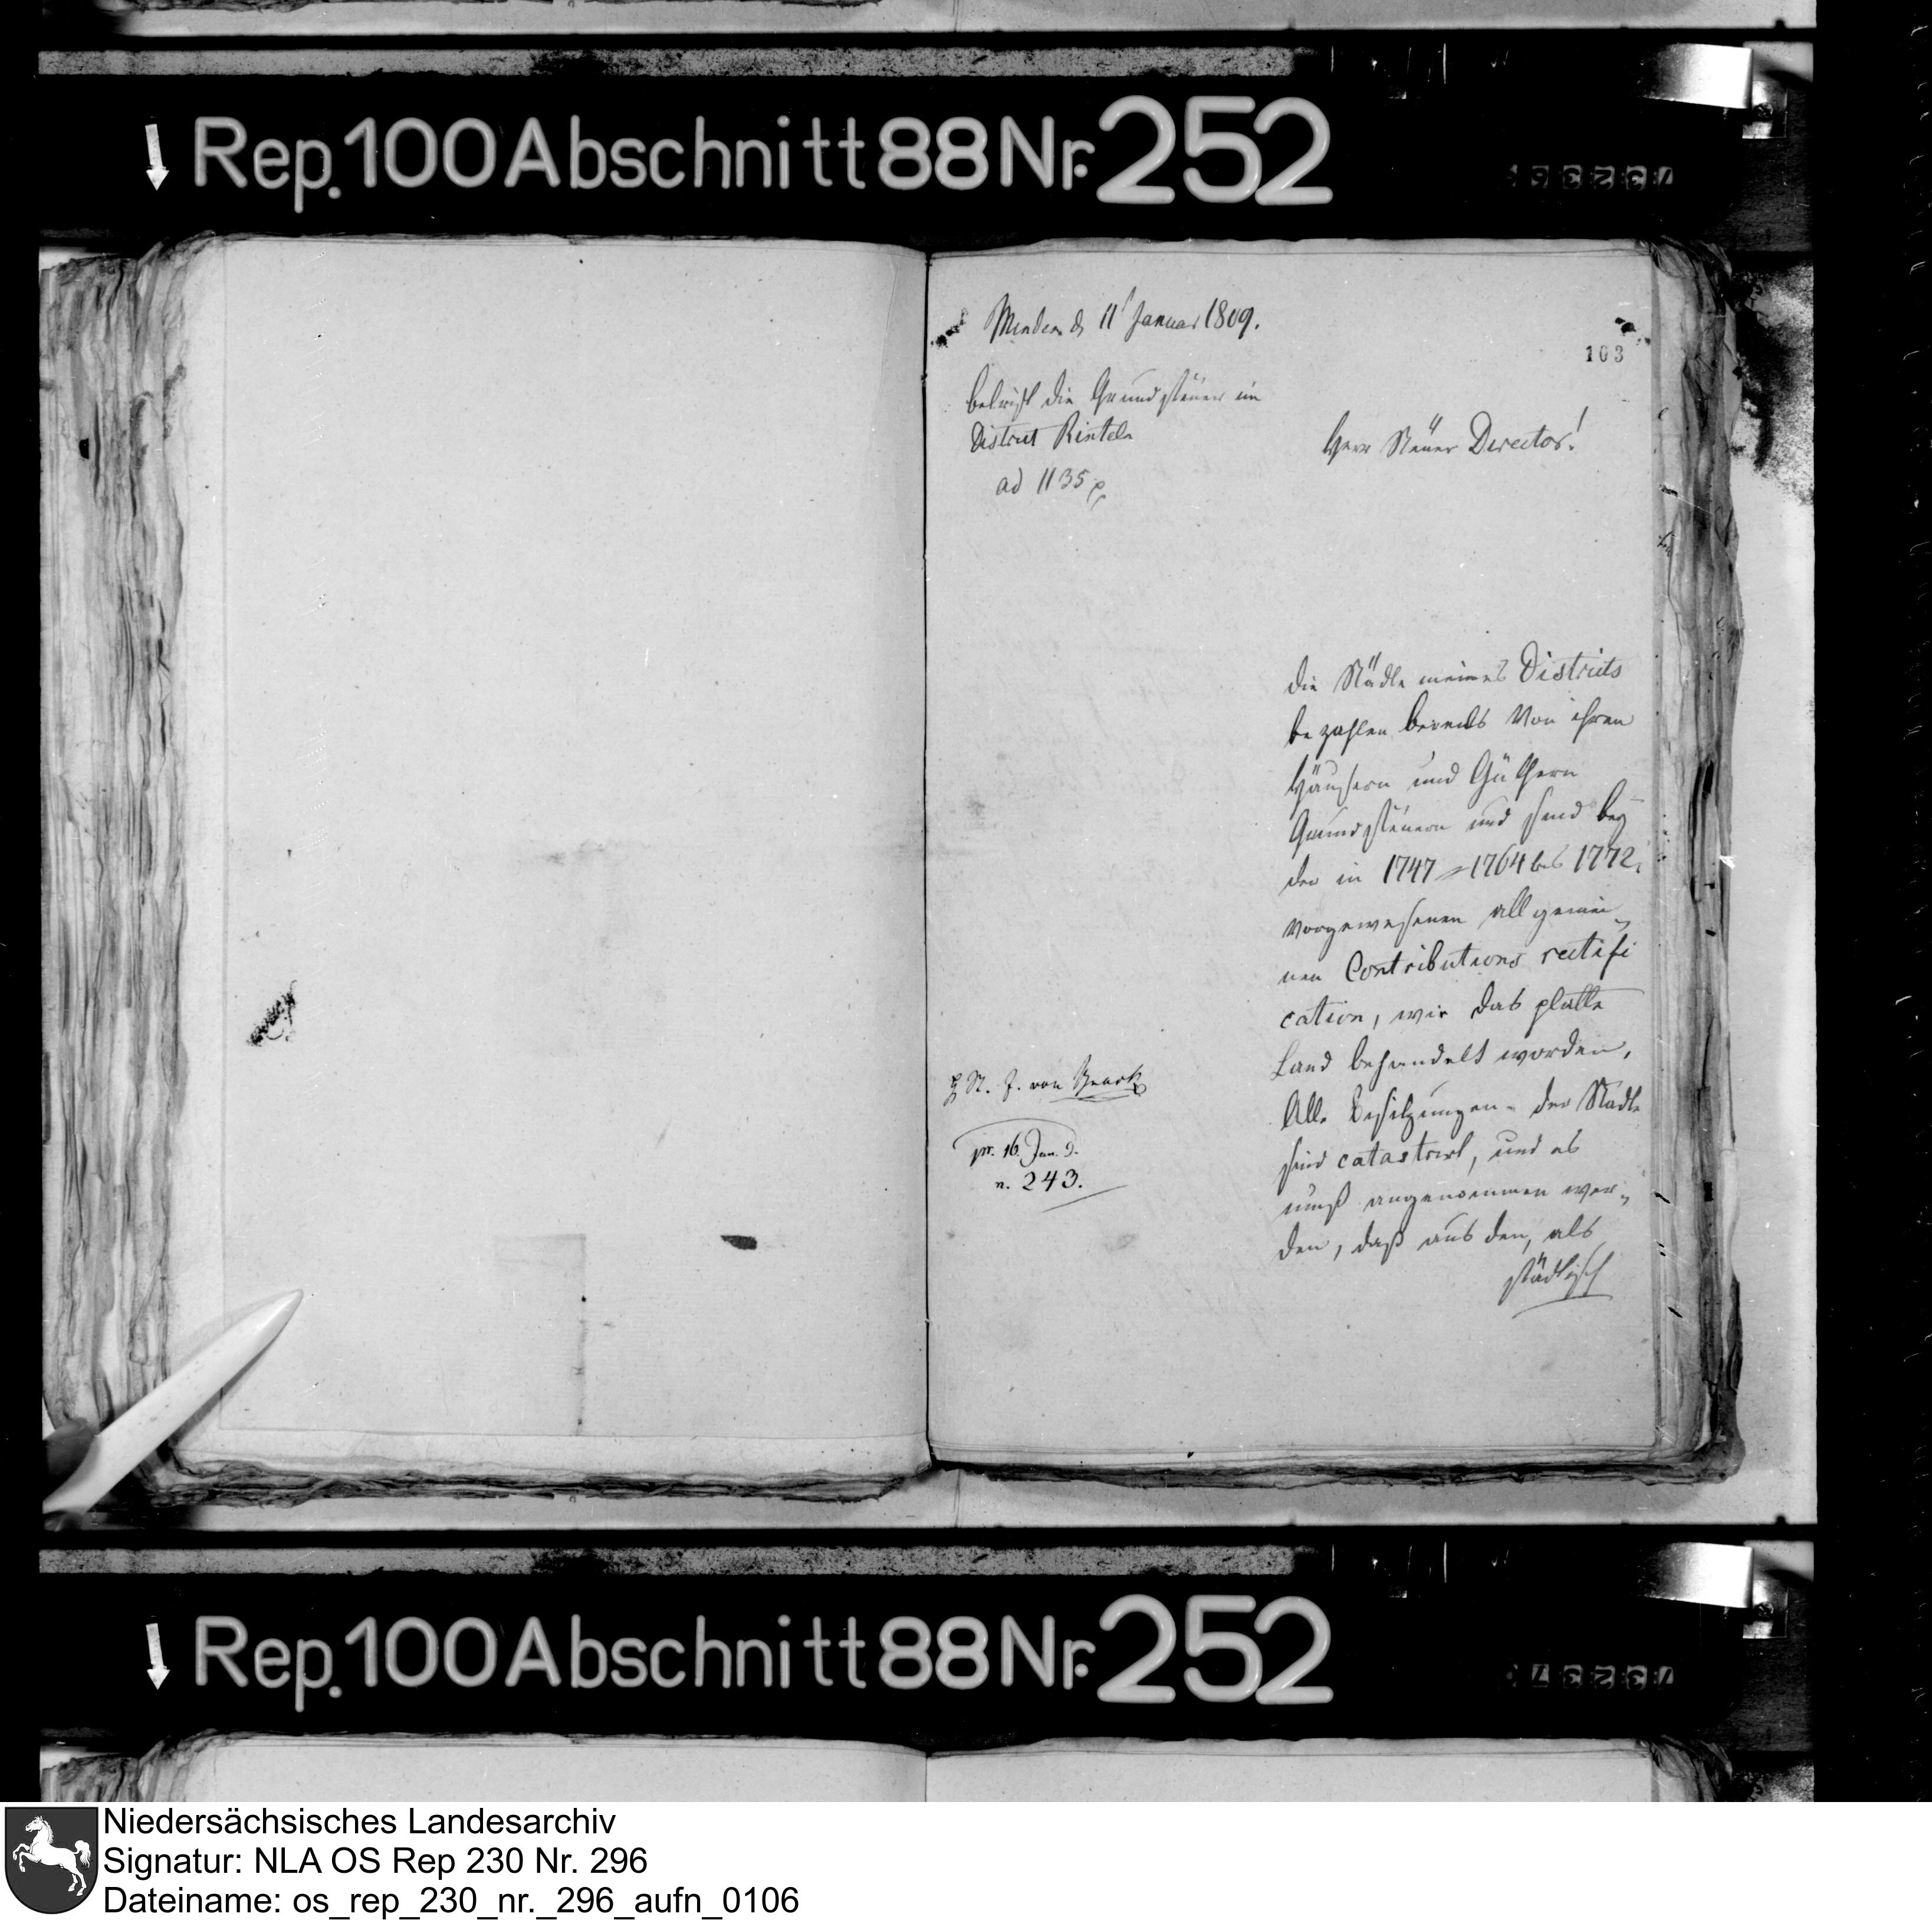 Rep. 100 Abschnitt 88 Nr. 252
Minden d 11t Januar 1809.
103
betrift die Grundsteuer im
District Rinteln
ad 1135 p
Herr Steuer Director!
die Städte meines Districts
bezahlen bereits von ihren
Häusern und Güthern
Grundsteuern und sind bey
der in 1747 = 1764 bis 1772
vorgewesenen allgemei-
nen Contributions rectifi
cation, wie das platte
Land behandelt worden.
Alle Besitzungen der Städte
sind catastrirt, und es
muß angenommen wer-
den, daß aus den, als
städtisch
H. St. J. von
pr. 16. Jan. 9.
n. 243.
Rep. 100 Abschnitt 88 Nr. 252
Niedersächsisches Landesarchiv
Signatur: NLA OS Rep 230 Nr. 296
Dateiname: os_rep_230_nr._296_aufn_0106